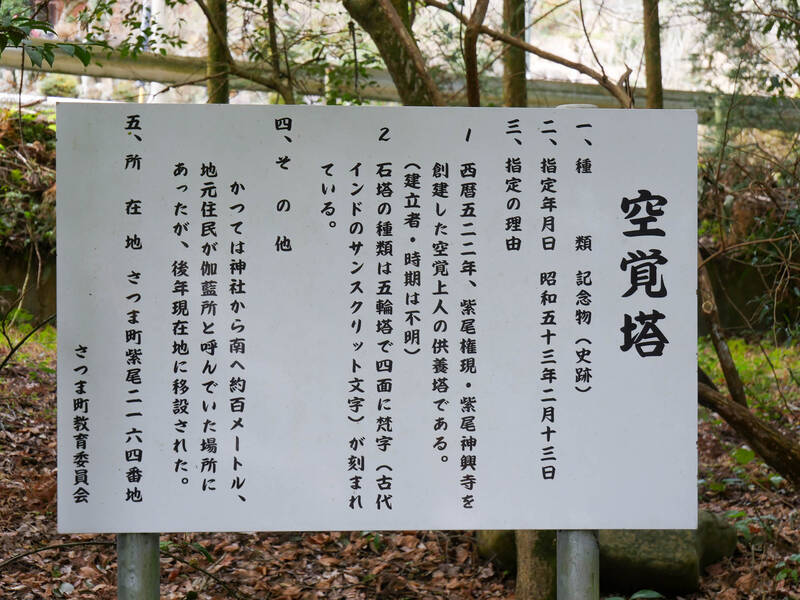 空覚塔
一、種　　類　記念物（史跡）
二、指定年月日　昭和五十三年二月十三日
三、指定の理由
1　西暦五二二年、紫尾権現・紫尾神興寺を
創建した空覚上人の供養塔である。
（建立者・時期は不明）
2　石塔の種類は五輪塔で四面に梵字（古代
インドのサンスクリット文字）が刻まれ
ている。
四、その他
かつては神社から南へ約百メートル、
地元住民が伽藍所と呼んでいた場所に
あったが、後年現在地に移設された。
五、所　在　地　さつま町紫尾二一六四番地
さつま町教育委員会